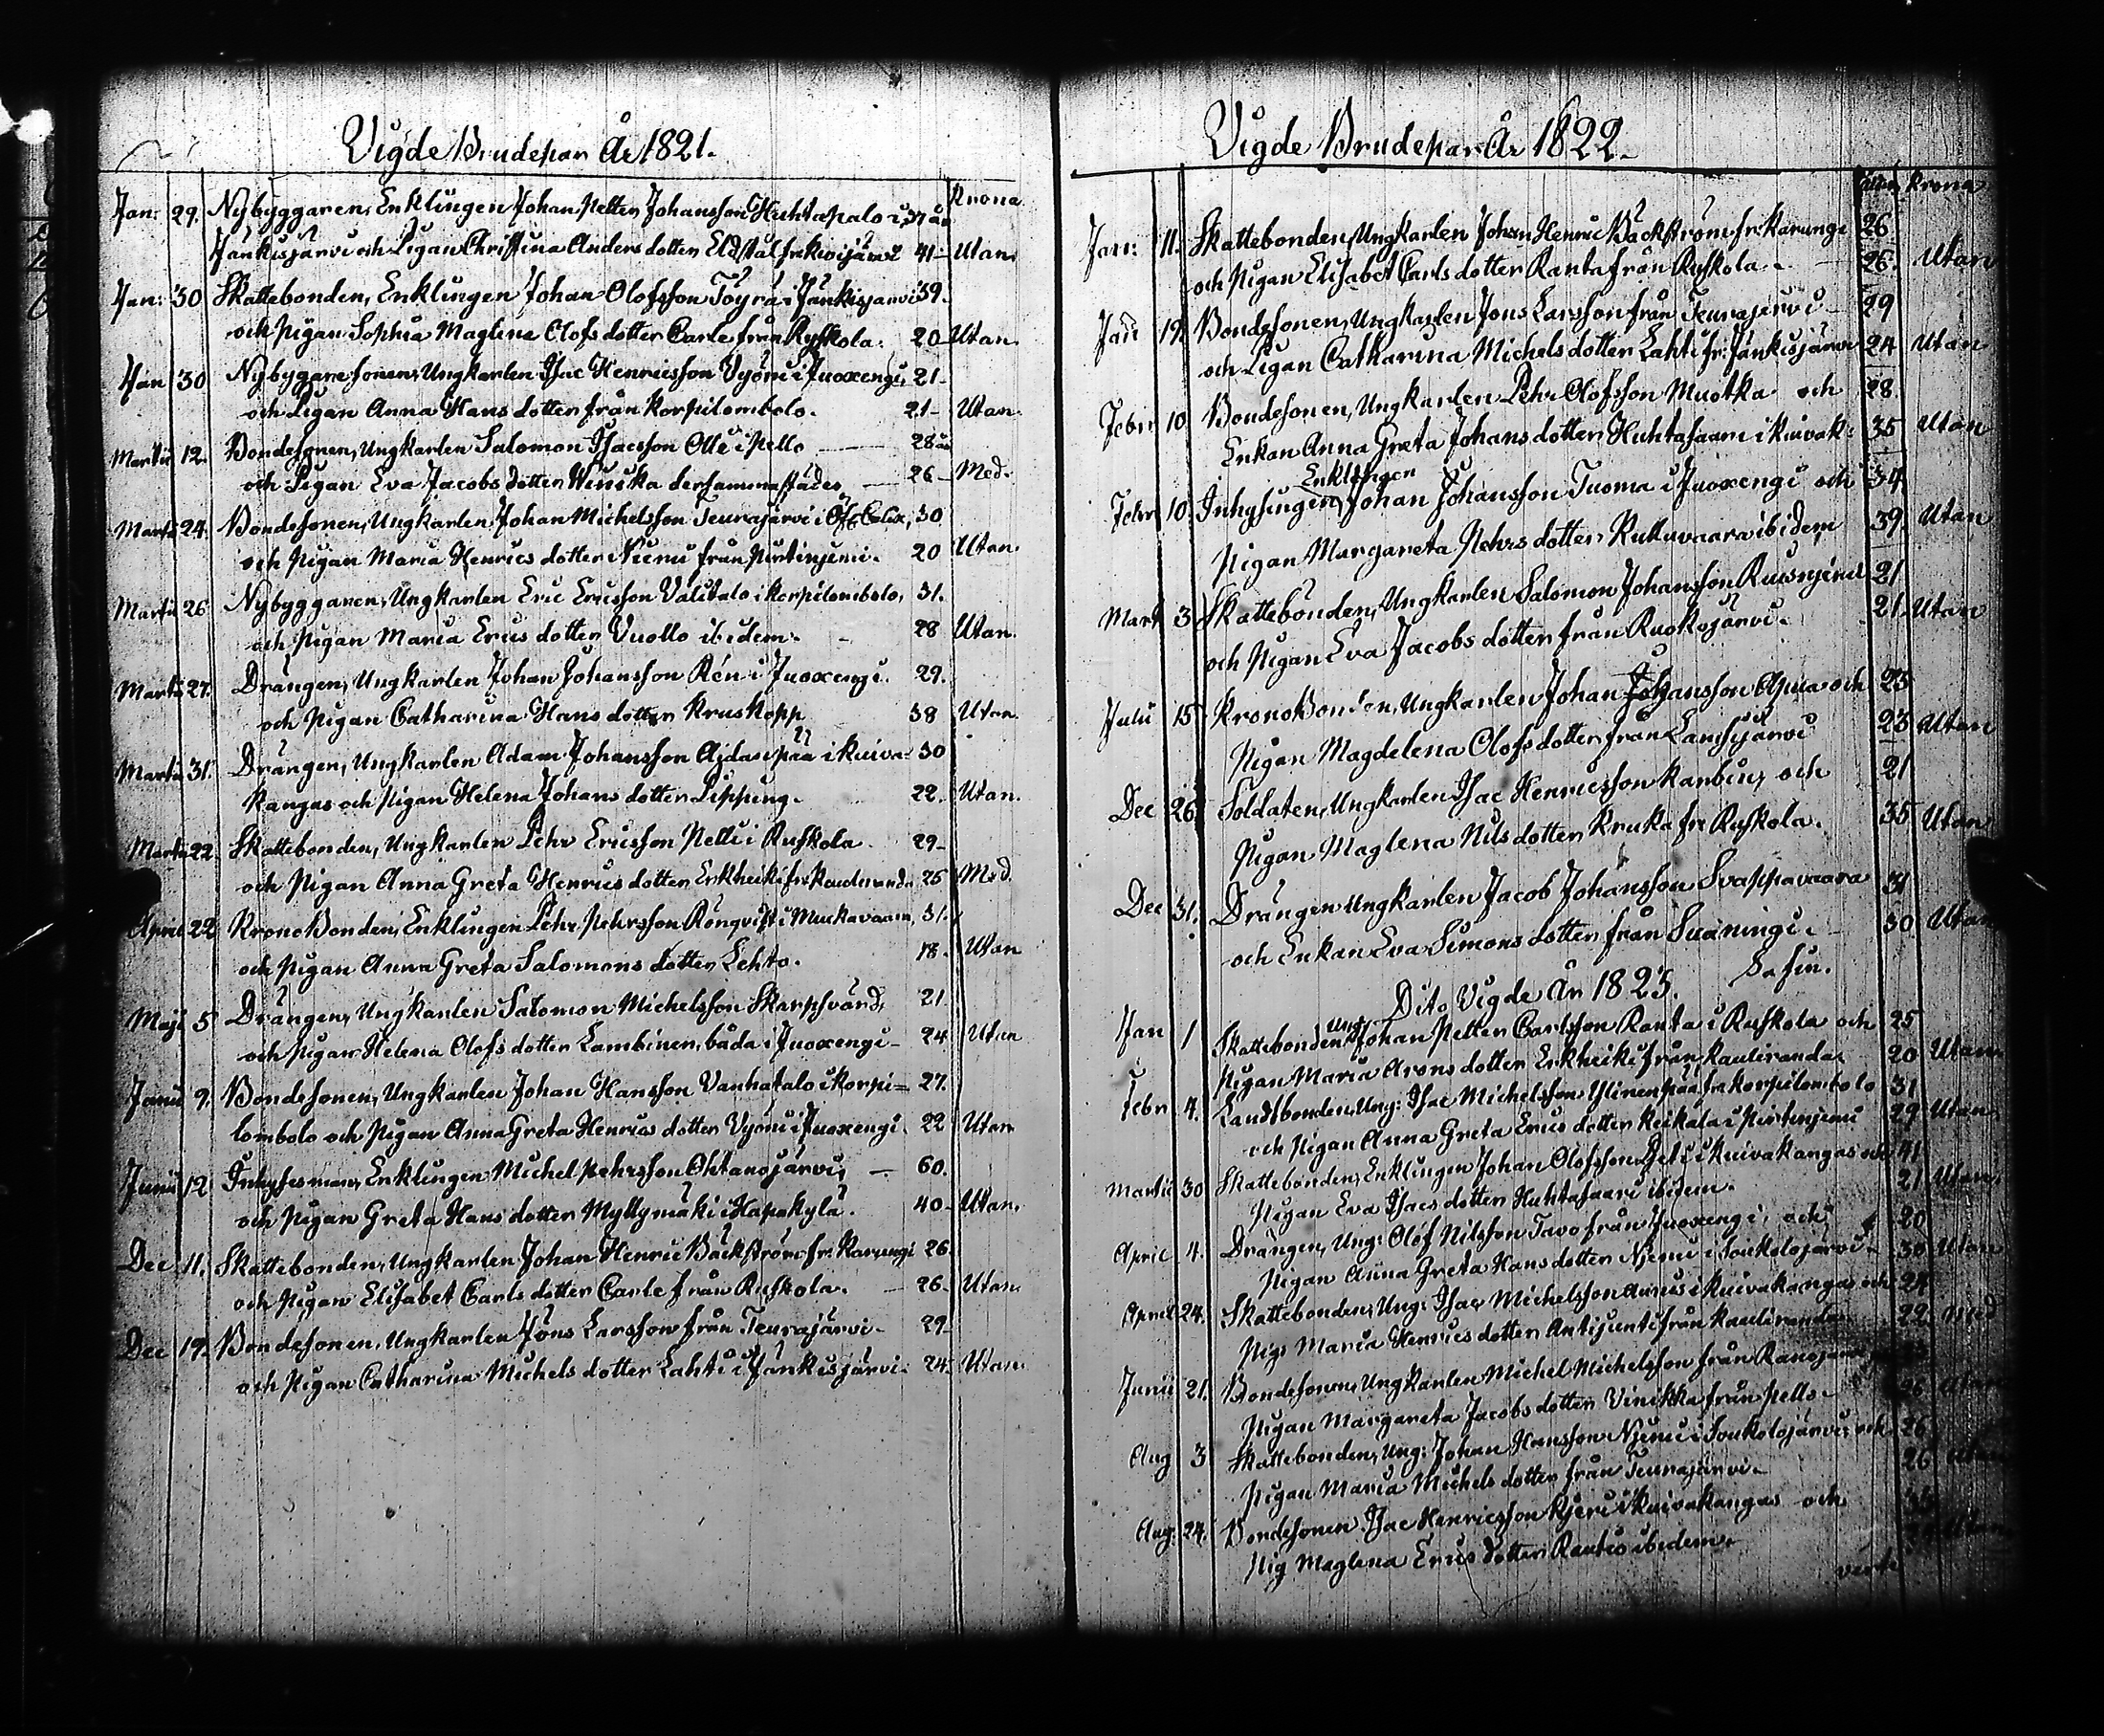 Vigde Brudepar År 1821.
Krona
Jan: 29. Nybyggaren, Enklingen Johan Petter Johansson Huhtapalo i 37 år
Jänkisjärvi och Pigan Christina Anders dotter Eldstål fr. 41- Utan.
Jan: 30 Skattebonden, Enklingen Johan Olofsson Töyrä i Jänkisjärvi 39.
och Pigan Sophia Maglena Olofs dotter Carle från Ruskola. 20 Utan.
Jan 30 Nybyggaresonen, Ungkarlen Isac Henricsson Vyöni i Juoxengi, 21-
och Pigan Anna Hans dotter från Korpilombolo. 21- Utan.
Martii 12. Bondesonen, Ungkarlen Salomon Isacsson Olli i Pello 28 år
och Pigan Eva Jacobs dotter Winika dersammastädes 26- Med.
Martii 24. Bondesonen, Ungkarlen Johan Michelsson Teurajärvi i Öf. Calix, 30
och Pigan Maria Henrics dotter Niemi från Pirtiniemi. 20 Utan.
Martii 26 Nybyggaren, Ungkarlen Eric Ericsson Välitalo i Korpilombolo, 31.
och Pigan Maria Erics dotter Vuollo ibidem. 28 Utan.
Martii 27. Drängen, Ungkarlen Johan Johansson Rén i Juoxengi. 29.
och Pigan Catharina Hans dotter Kruskopp 38 Utan.
Martii 31. Drängen, Ungkarlen Adam Johansson Aidanpää i Kuiva- 30
kangas och Pigan Helena Johans dotter Lipping. 22. Utan.
Martii 22 Skattebonden, Ungkarlen Pehr Ericsson Pelli i Ruskola 29-
och Pigan Anna Greta Henrics dotter Erkheiki fr. Kauliranda 25 Med.
April 22 KronoBonden, Enklingen Pehr Pehrsson Rönqvist i Muskavaara, 31.
och Pigan Anna Greta Salomons dotter Lehto. 18. Utan
Maji 5 Drängen, Ungkarlen Salomon Michelsson Skarpsvärd, 21
och Pigan Helena Olofs dotter Lambinen, båda i Juoxengi- 24 Utan
Junii 9. Bondesonen, Ungkarlen Johan Hansson Vanhatalo i Korpi= 27.
lombolo och Pigan Anna Greta Henrics dotter Vyöni i Juoxengi. 22 Utan
Junii 12 Inhysesman, Enklingen Michel Pehrsson Ohtanajärvi, 60.
och Pigan Greta Hans dotter Myllymäki i Hapakylä. 40- Utan.
Dec 11. Skattebonden, Ungkarlen Johan Henric Bäckström fr. Karungi 26.
och Pigan Elisabet Carls dotter Carle från Ruskola. 26- Utan.
Dec 19. Bondesonen, Ungkarlen Jöns Larsson från Teurajärvi- 29-
och Pigan Catharina Michels dotter Lahti i Jänkisjärvi- 24- Utan.
Vigde Brudepar År 1822.
Krona
Jan: 11. Skattebonden, Ungkarlen Johan Henric Bäckström fr. Karungi 26
och Pigan Elisabet Carls dotter Ranta från Ruskola. 26. Utan
Jan 19 Bondesonen, Ungkarlen Jöns Larsson från Teurajärvi 29
och Pigan Catharina Michels dotter Lahti fr. Jänkisjärvi 24 Utan
Febr 10 Bondesonen, Ungkarlen Pehr Olofsson Muotka och 28.
Enkan Anna Greta Johans dotter Huhtasaari i Kuivak: 35 Utan
Enklingen
Febr 10. Inhysingen Johan Johansson Tuoma i Juoxengi och 34
Pigan Margareta Pehrs dotter Kukuvaara ibidem 39. Utan
Mart 3 Skattebonden, Ungkarlen Salomon Johansson 21
och Pigan Eva Jacobs dotter från Ruokojärvi. 21. Utan
Julii 15 KronoBonden, Ungkarlen Johan Johansson Apua och 25
Pigan Magdelena Olofs dotter från Lansijärvi 23 Utan
Dec 26 Soldaten, Ungkarlen Isac Henricsson Karbin, och 21
Pigan Maglena Nils dotter Kruka fr Ruskola. 35 Utan
Dec 31. Drängen Ungkarlen Jacob Johansson Svappavaara 31
och Enkan Eva Simons dotter från Suaningi. 30 Utan
S. fin.
Dito Vigde År 1823.
Jan 1 Skattebonden Ung: Johan Petter Carlsson Ranta i Ruskola och 25
Pigan Maria Arons dotter Erkheiki från Kauliranda. 20 Utan
Febr 4. Landsbonden, Ung: Isac Michelsson Ylinenpää fr Korpilombolo 31
och Pigan Anna Greta Erics dotter Keikala i Pirtiniemi 29 Utan
Martii 30 Skattebonden, Enklingen Johan Olofsson i Kuivakangas och 41
Pigan Eva Isacs dotter Huhtasaari ibidem. 21 Utan
April 4. Drängen, Ung: Olof Nilsson Tavo från Juoxengi, och 20
Pigan Anna Greta Hans dotter Niemi i Soukolojärvi. 30 Utan
April 24. Skattebonden, Ung: Isac Michelsson i Kuivakangas och 24
Pig: Maria Henrics dotter Antijunti från Kauliranda 22 med
Junii 21. Bondesonen, Ungkarlen Michel Michelsson från
Pigan Margareta Jacobs dotter Vinikka från Pello. 26 Utan
Aug 3 Skattebonden, Ung: Johan Hansson Niemi i Soukolojärvi, och 26
Pigan Maria Michels dotter från Teurajärvi. 26 Utan
Aug: 24. Bondesonen Isac Henricsson Kieri i Kuivakangas och 35
Pig Maglena Erics dotter Rautio ibidem. Utan
verte